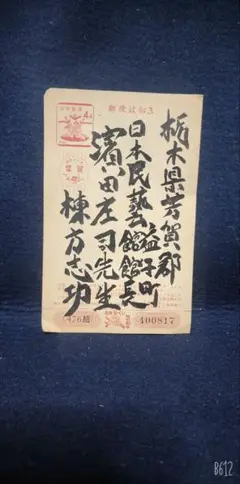 郵便はがき
栃木県芳賀郡
益子町
日本民藝館館長
濱田庄司先生
棟方志功
年賀
4
400817
B612